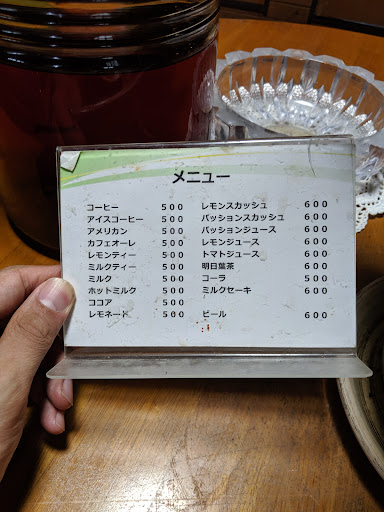 メニュー
コーヒー 500
アイスコーヒー 500
アメリカン 500
カフェオーレ 500
レモンティー 500
ミルクティー 500
ミルク 500
ホットミルク 500
ココア 500
レモネード 500
レモンスカッシュ 600
パッションスカッシュ 600
パッションジュース 600
レモンジュース 600
トマトジュース 600
明日葉茶 600
コーラ 600
ミルクセーキ 600
ビール 600